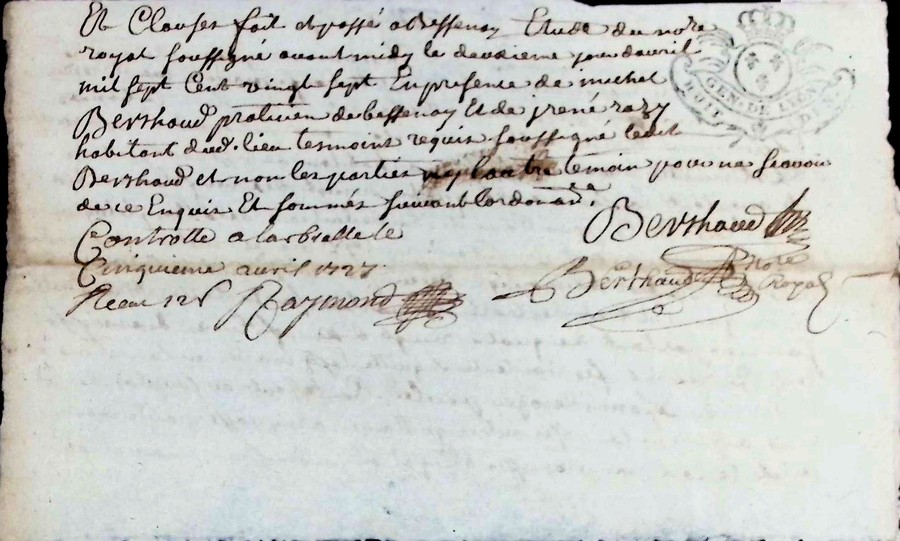 Et Clauses fait et passé a Bessenay Etude du no.re
royal soussigné avant midy le deuxieme jour davril
mil sept Cent vingt sept En presence de michel
Berthaud praticien de bessenay Et de rené razy
habitant dud. lieu tesmoins requis soussigné ledit
Berthaud et non les parties ny lautre temoin pour ne scavoir
de ce Enquis Et sommés suivant lordonance.
Controlle a larbrelle le
Cinquieme avril 1727
Receu 12s Raymond
Berthaud
Berthaud No.re Royal
GEN. DE LYON